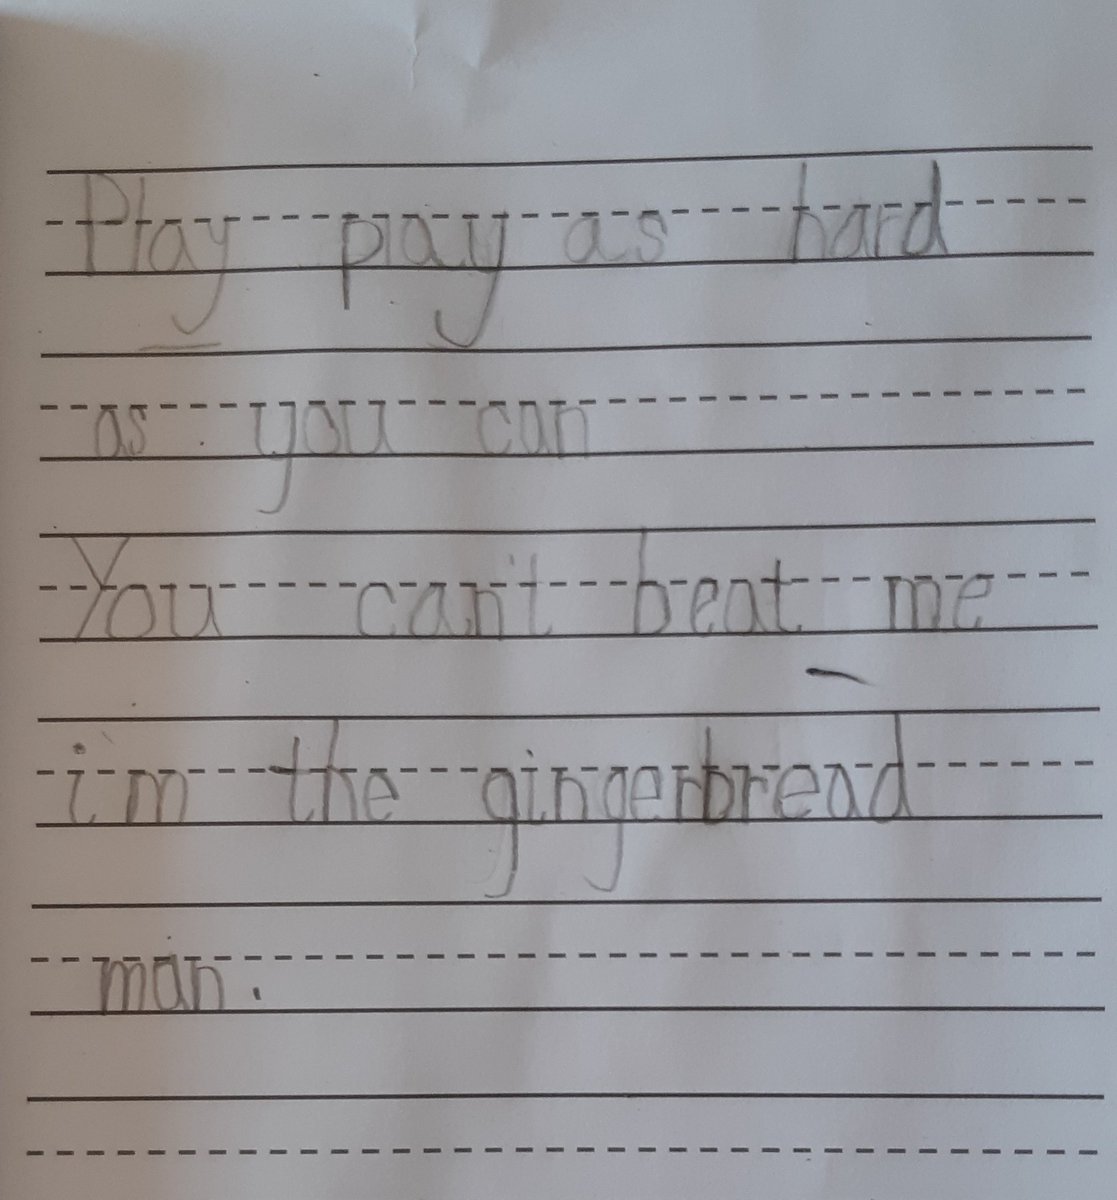 Play play as hard
as you can
You can't beat me
i'm the gingerbread
man.